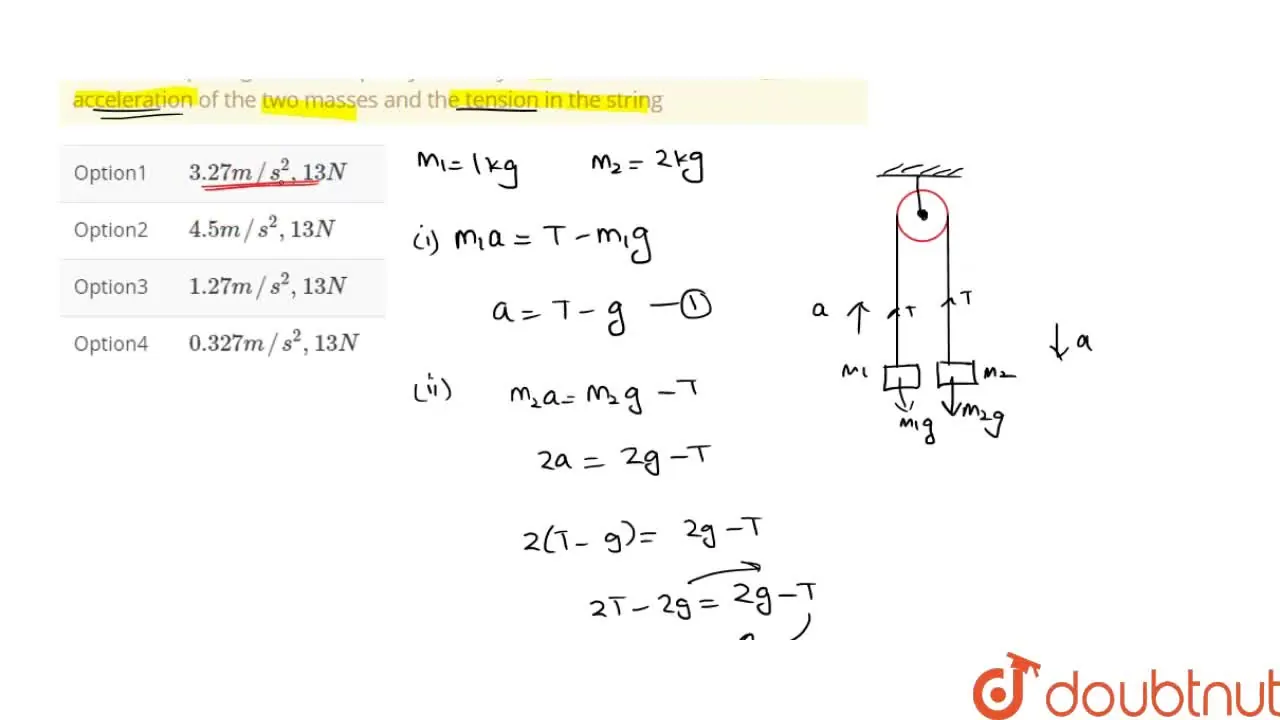 acceleration of the two masses and the tension in the string
Option1 3.27m/s², 13N
Option2 4.5m/s², 13N
Option3 1.27m/s², 13N
Option4 0.327m/s², 13N
m₁=1kg m₂=2kg
(i) m₁a = T - m₁g
a = T - g — ①
(ii) m₂a = m₂g - T
2a = 2g - T
2(T - g) = 2g - T
2T - 2g = 2g - T
a
T
T
a
M1
M2
m₁g
m₂g
doubtnut